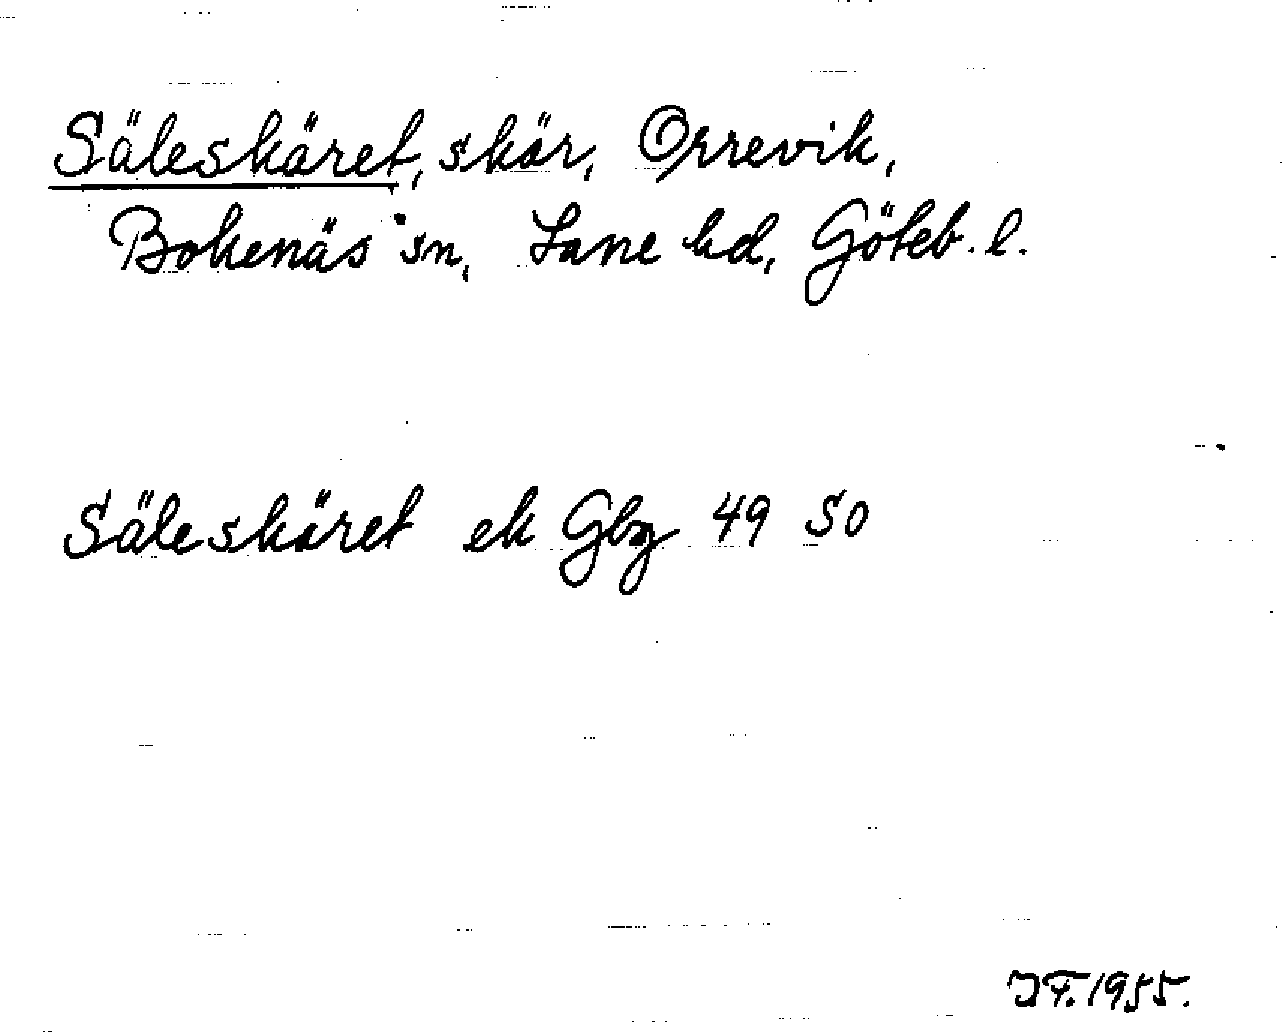 Säleskäret, skär, Orrevik,
Bokenäs sn, Lane hd, Göteb. l.
Säleskäret ek Gbg 49 SO
JF. 1955.